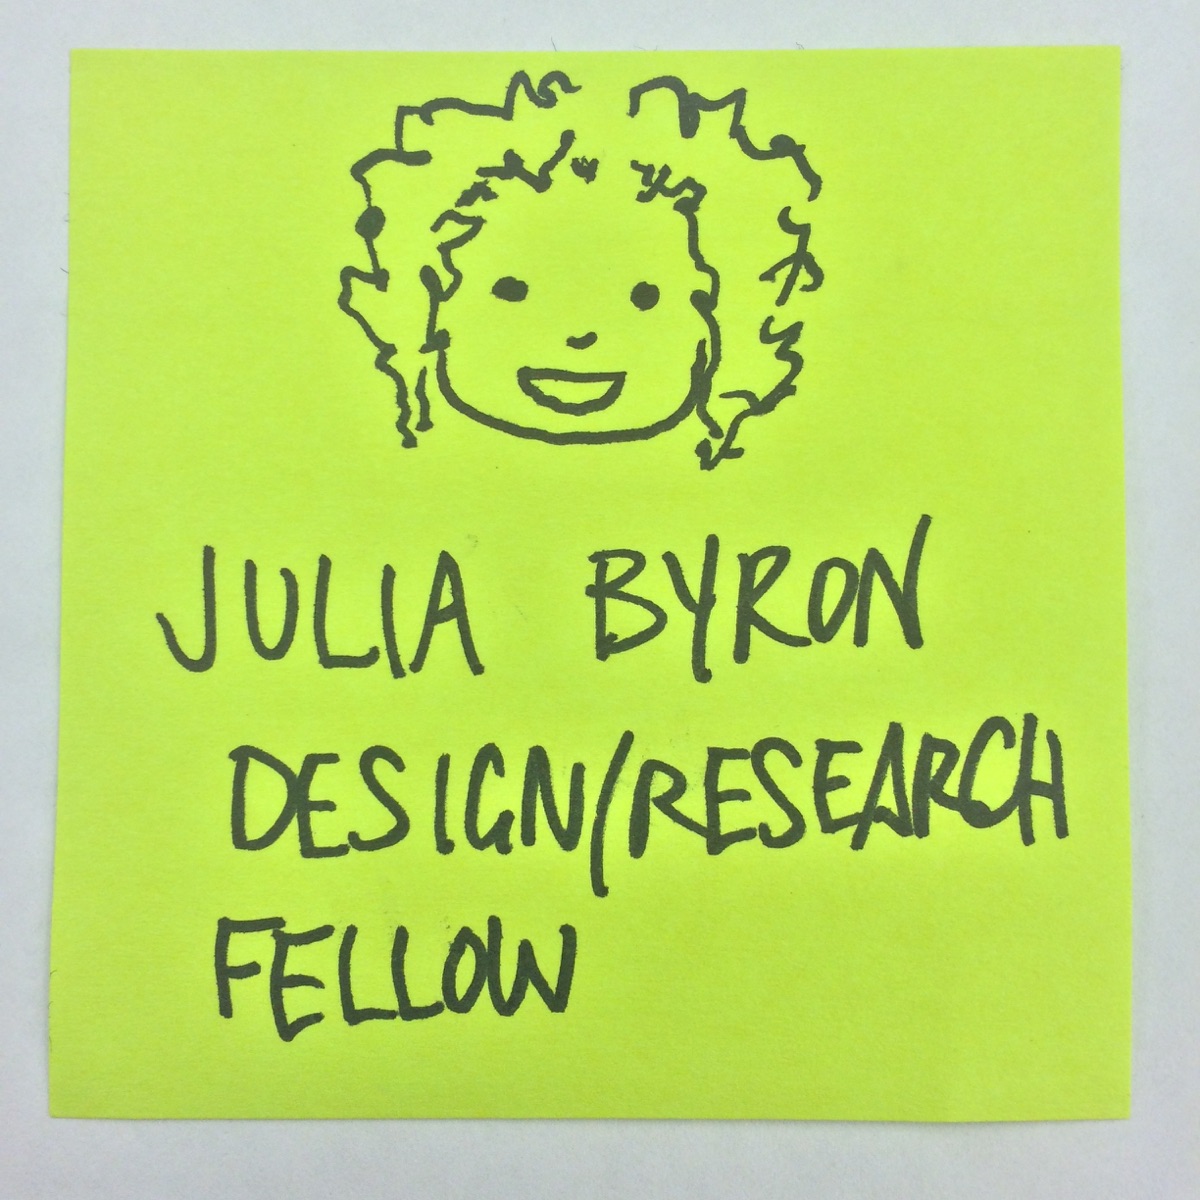 JULIA BYRON
DESIGN/RESEARCH
FELLOW